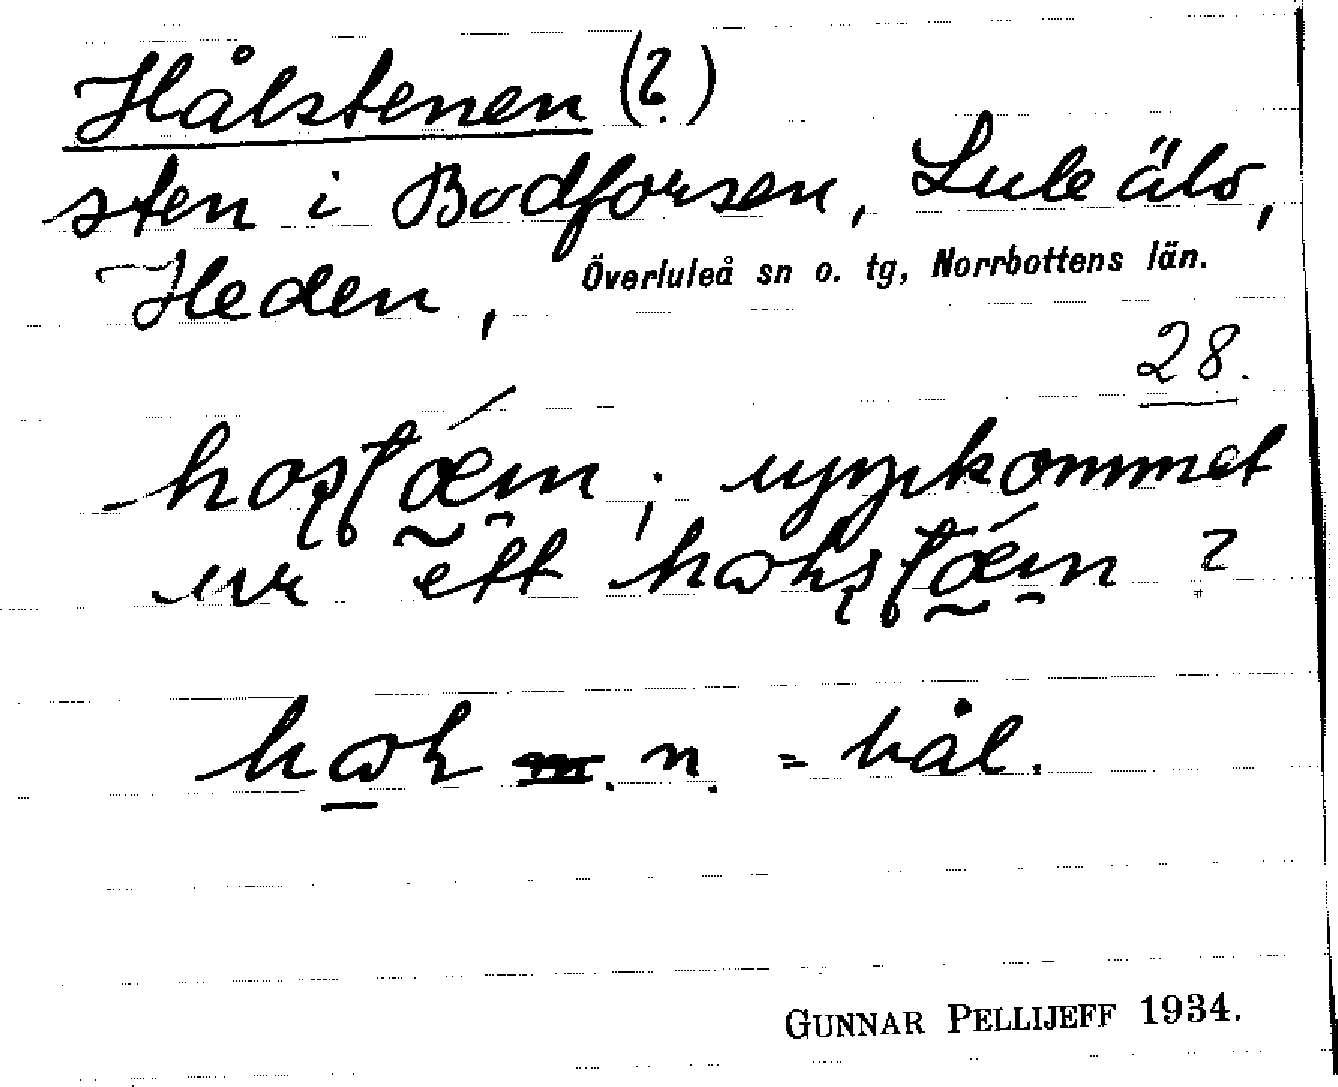 Hålstenen (?)
sten i Bodforsen, Lule älv,
Heden, Överluleå sn o. tg, Norrbottens län.
28.
; uppkommet
ur ett ?
n. = hål.
GUNNAR PELLIJEFF 1934.